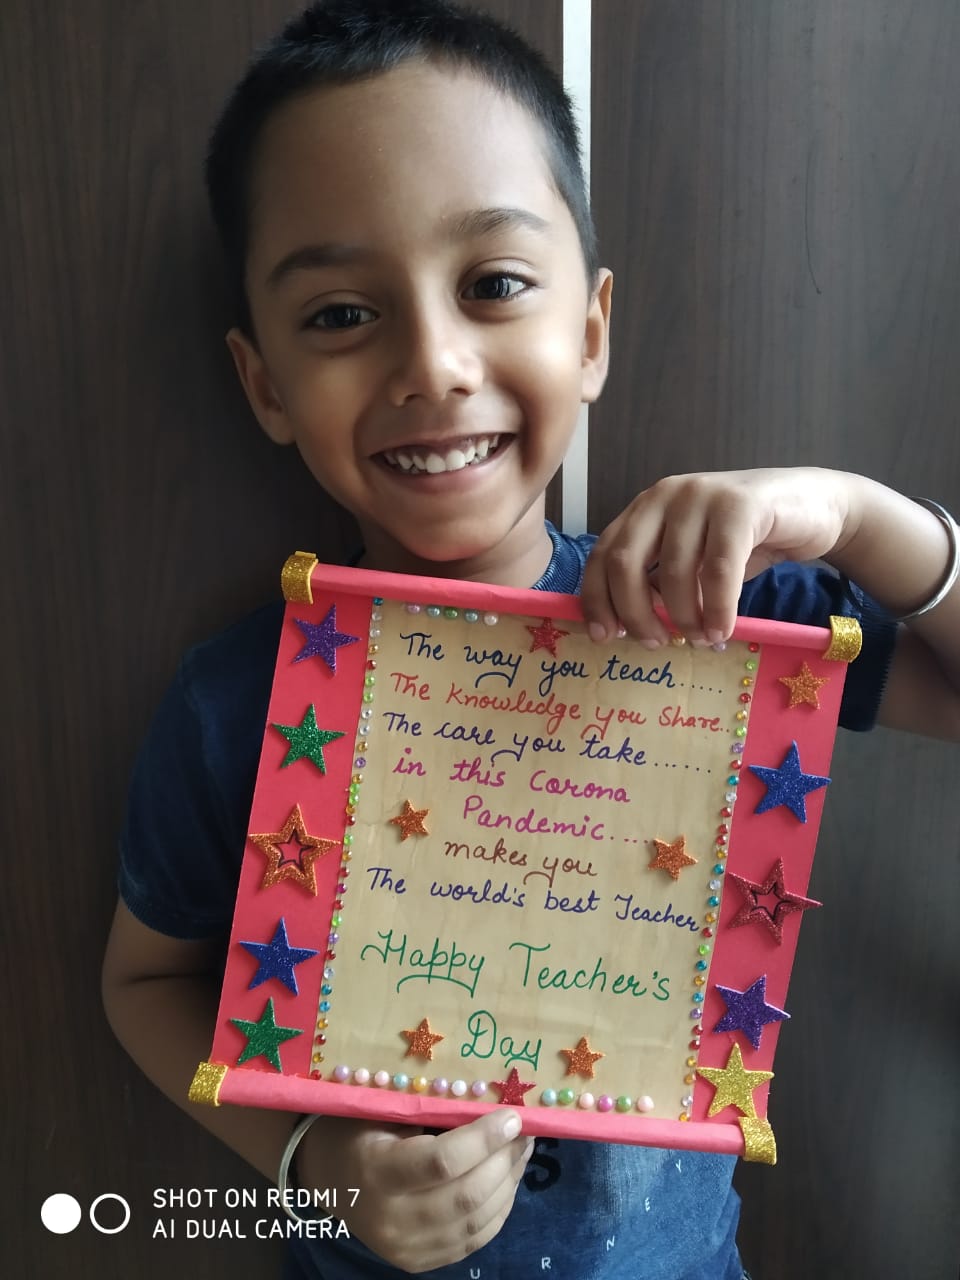 The way you teach.....
The Knowledge you Share..
The care you take......
in this Corona
Pandemic....
makes you
The world's best Teacher
Happy Teacher's
Day
S
Y
E
N
R
U
SHOT ON REDMI 7
AI DUAL CAMERA